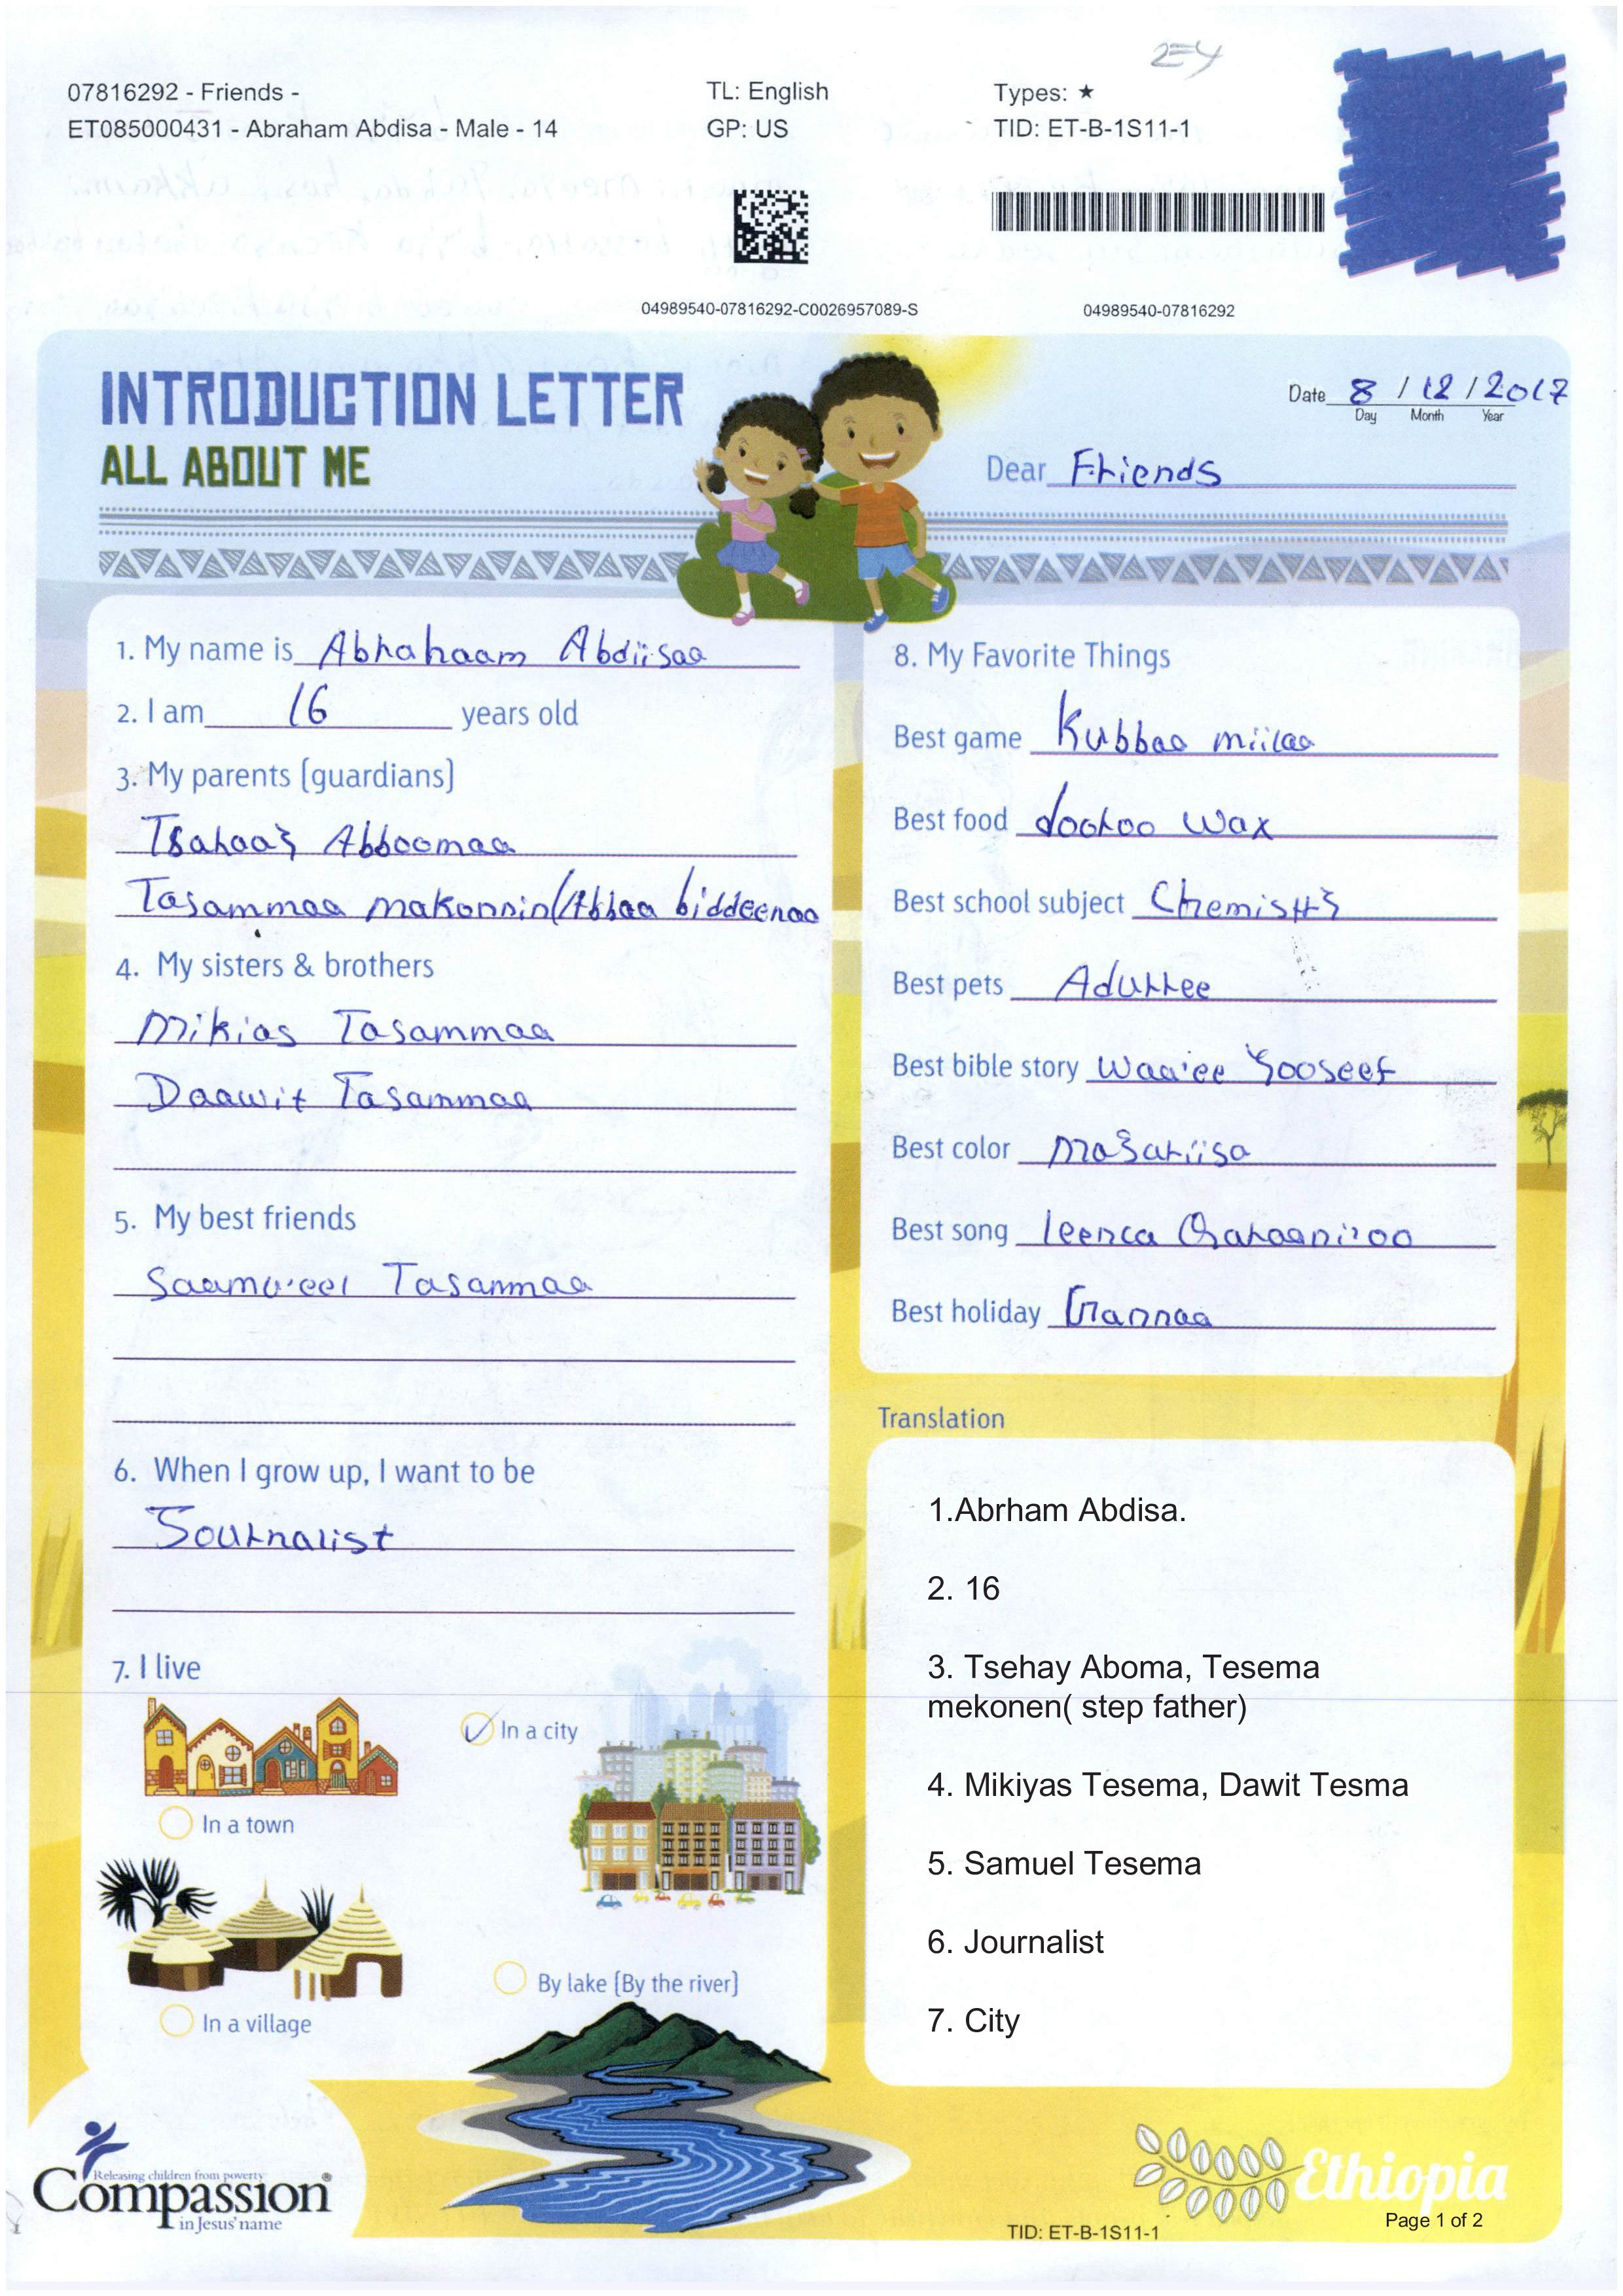 2=4
07816292 - Friends -
ET085000431 - Abraham Abdisa - Male - 14
TL: English
GP: US
Types: ★
TID: ET-B-1S11-1
04989540-07816292-C0026957089-S
04989540-07816292
INTRODUCTION LETTER
ALL ABOUT ME
Date 8 / 12 / 2017
Day Month Year
Dear Friends
1. My name is Abrahaam Abdiisaa
2. I am 16 years old
3. My parents (guardians)
Tsahaay Abboomaa
Tasammaa makonnin (Abbaa biddeenaa
4. My sisters & brothers
Mikias Tasammaa
Daawit Tasammaa
5. My best friends
Saamu'eel Tasammaa
6. When I grow up, I want to be
Journalist
7. I live
In a town
In a city
In a village
By lake (By the river)
8. My Favorite Things
Best game Kubbaa miilaa
Best food dooroo Wax
Best school subject Chemistry
Best pets Adurree
Best bible story Waa'ee Yooseef
Best color
Best song leenca
Best holiday Gannaa
Translation
1.Abrham Abdisa.
2. 16
3. Tsehay Aboma, Tesema
mekonen( step father)
4. Mikiyas Tesema, Dawit Tesma
5. Samuel Tesema
6. Journalist
7. City
Releasing children from poverty
Compassion®
in Jesus' name
Ethiopia
Page 1 of 2
TID: ET-B-1S11-1